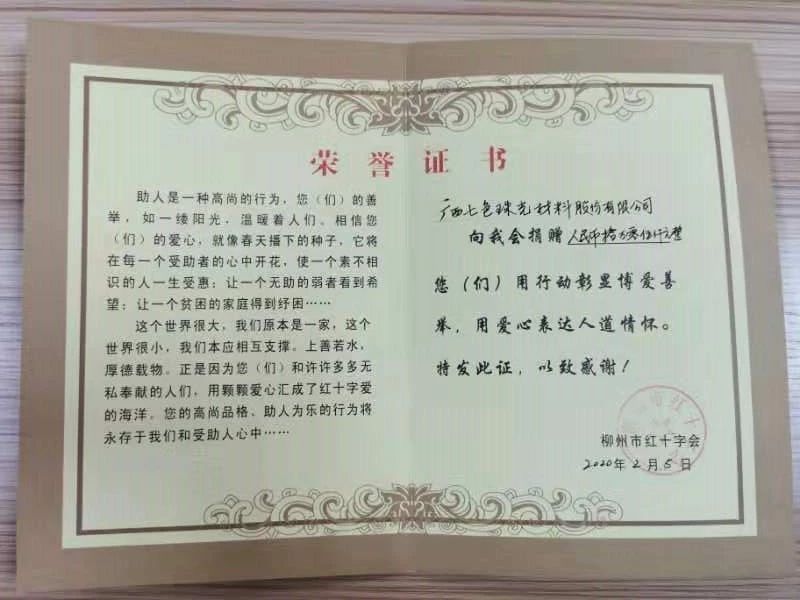 荣誉证书
助人是一种高尚的行为，您（们）的善
举，如一缕阳光，温暖着人们。相信您
（们）的爱心，就像春天播下的种子，它将
在每一个受助者的心中开花，使一个素不相
识的人一生受惠：让一个无助的弱者看到希
望：让一个贫困的家庭得到纾困……
这个世界很大，我们原本是一家，这个
世界很小，我们本应相互支撑。上善若水，
厚德载物。正是因为您（们）和许许多多无
私奉献的人们，用颗颗爱心汇成了红十字爱
的海洋。您的高尚品格、助人为乐的行为将
永存于我们和受助人心中……
广西七色珠光材料股份有限公司
向我会捐赠人民币拾万零仟元整
您（们）用行动彰显博爱善
举，用爱心表达人道情怀。
特发此证，以致感谢！
柳州市红十字会
2020年2月5日